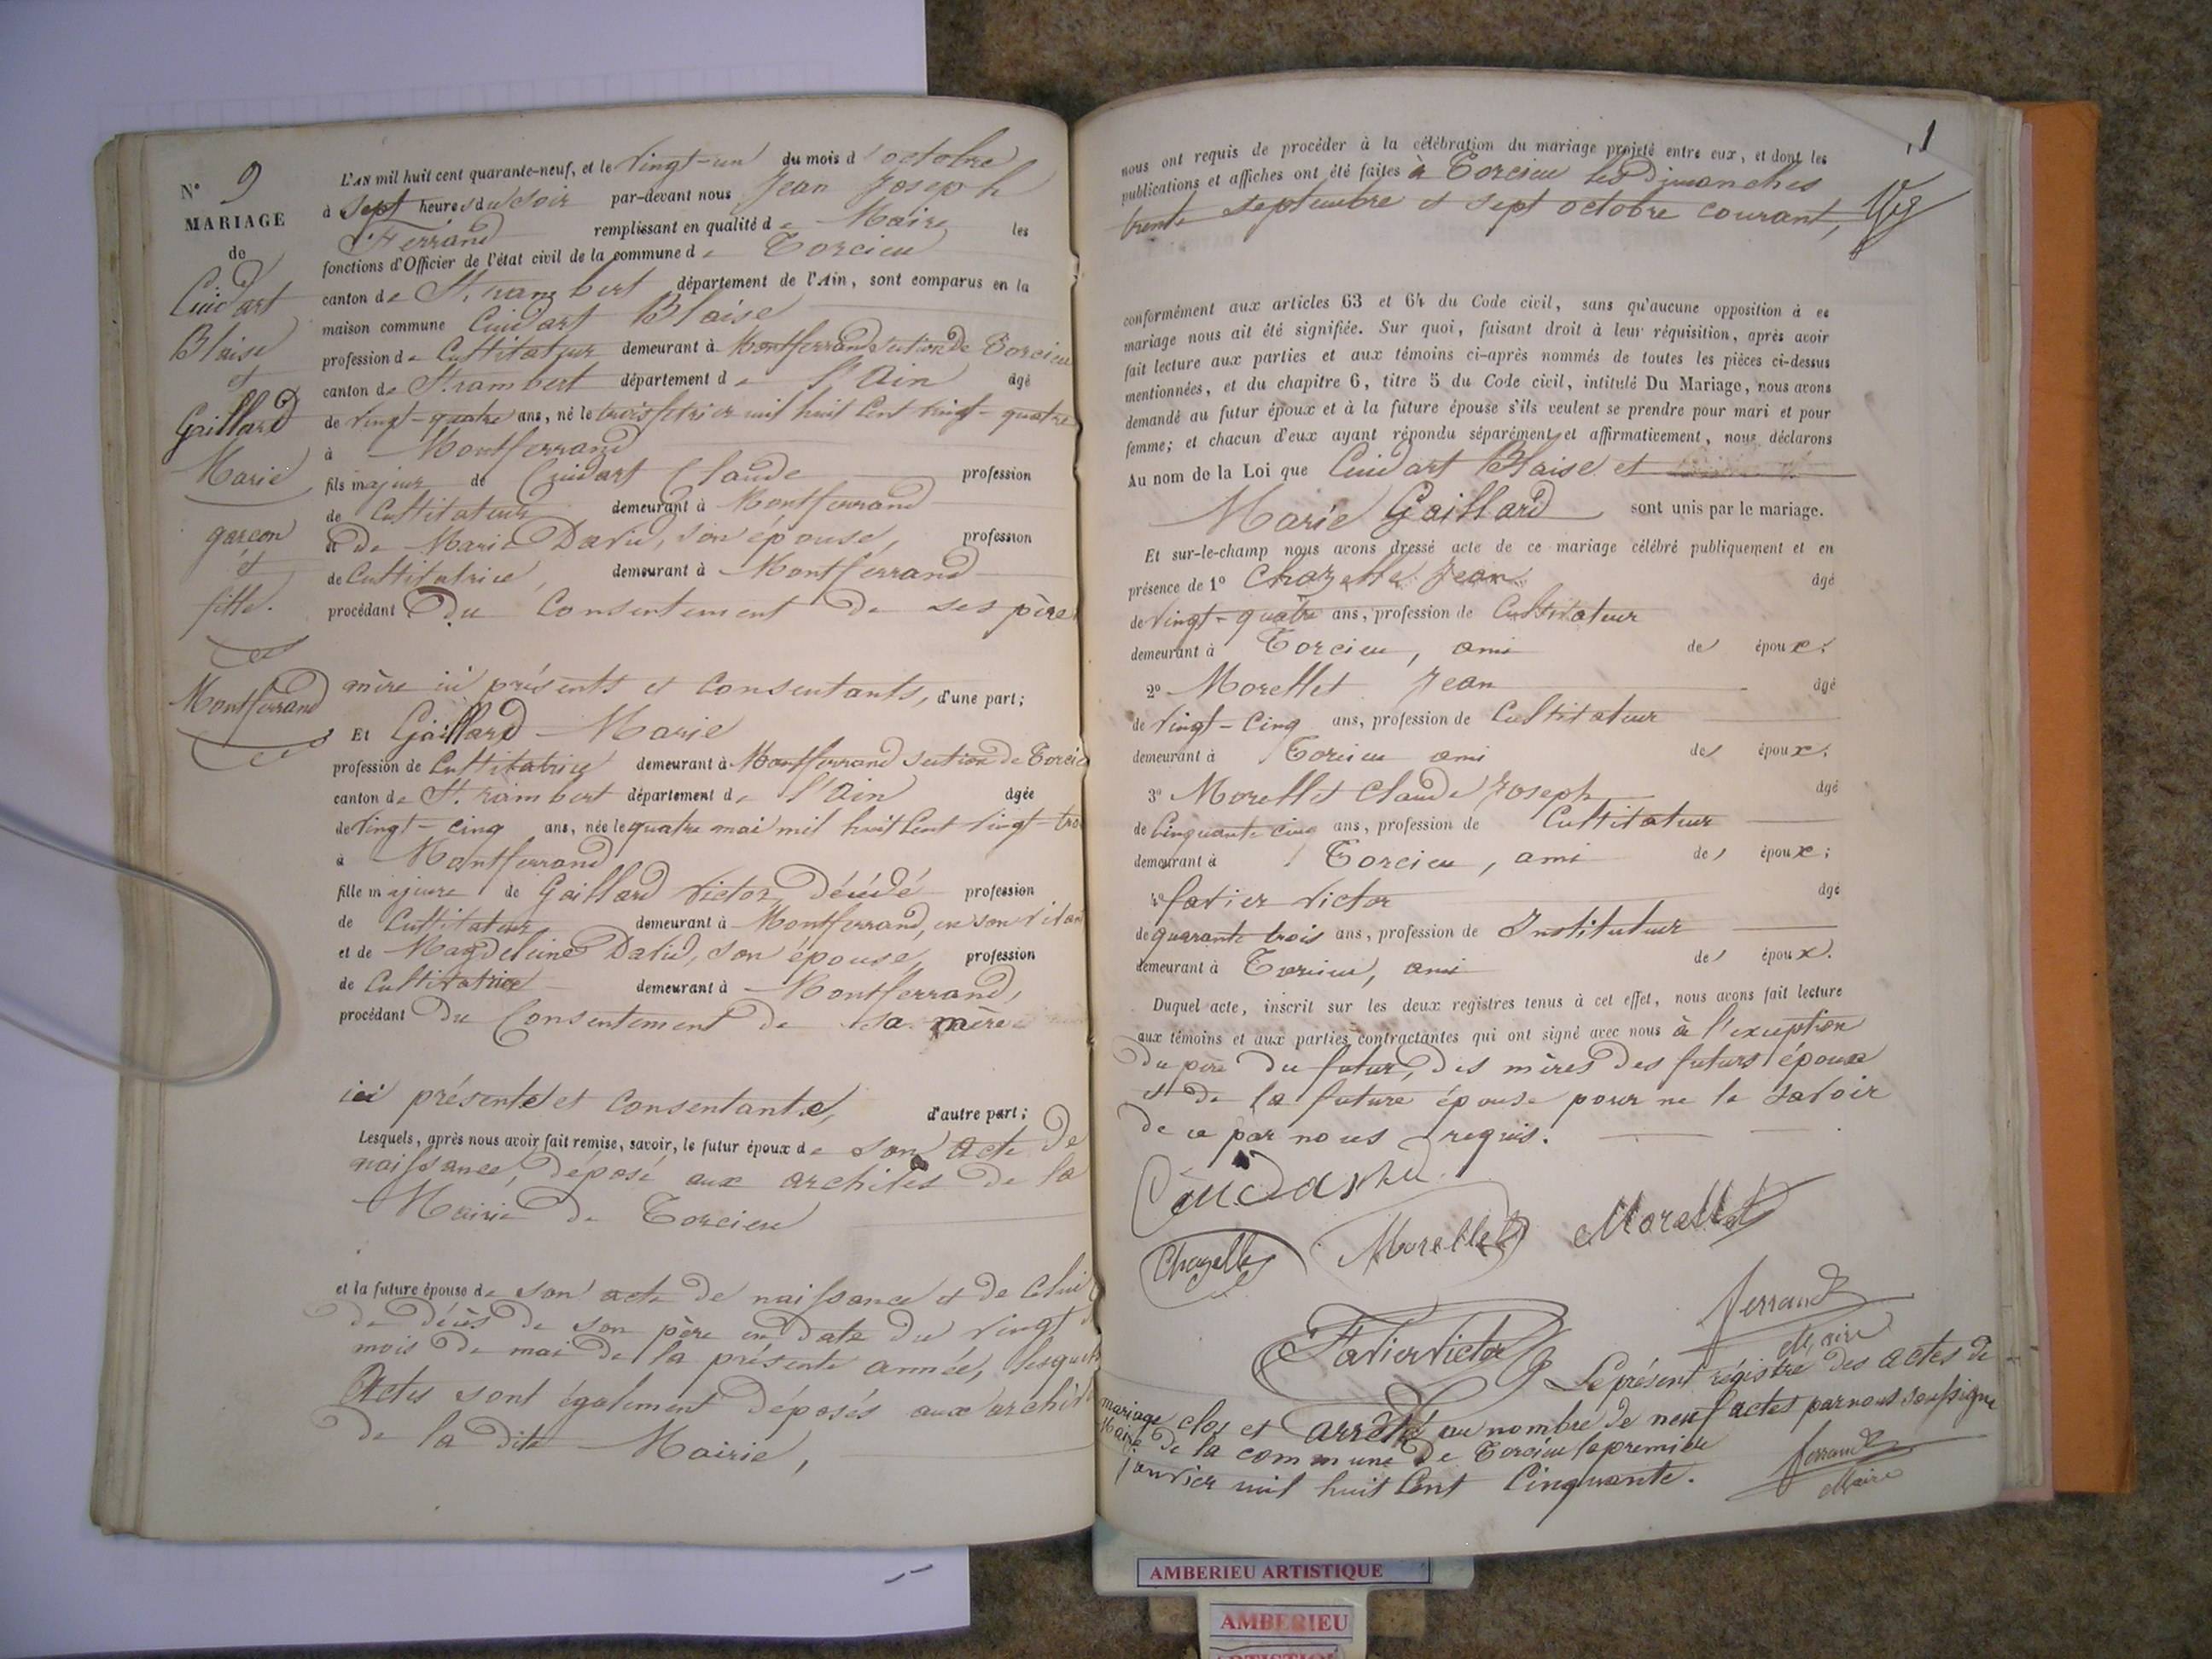 N° 9
MARIAGE
de
Cuidart
Blaise
et
Gaillard
Marie
garçon
et
fille.
Montferrand
L'AN mil huit cent quarante-neuf, et le vingt-un du mois d'octobre
à sept heures du soir par-devant nous Jean Joseph
Ferrand remplissant en qualité de Maire les
fonctions d'Officier de l'état civil de la commune de Torcieu
canton de St. rambert département de l'Ain, sont comparus en la
maison commune Cuidart Blaise
profession de Cultivateur demeurant à Montferrand section de Torcieu
canton de St. rambert département de l'Ain âgé
de vingt-quatre ans, né le trois fevrier mil huit Cent vingt-quatre
à Montferrand
fils majeur de Cuidart Claude profession
de Cultivateur demeurant à Montferrand
et de Marie David, son épouse, profession
de Cultivatrice, demeurant à Montferrand
procédant Du Consentement de ses père
mère ici présents et Consentants, d'une part;
Et Gaillard Marie
profession de Cultivatrice demeurant à Montferrand section de Torcie
canton de St. rambert département de l'Ain âgée
de vingt-cinq ans, née le quatre mai mil huit Cent vingt-tro
à Montferrand
fille majeure de Gaillard Victor Décédé profession
de Cultivateur demeurant à Montferrand, en son viva
et de Magdeleine David, son épouse, profession
de Cultivatrice demeurant à Montferrand,
procédant du Consentement de sa mère
ici présente et Consentante, d'autre part;
Lesquels, après nous avoir fait remise, savoir, le futur époux de son acte de
naissance, déposé aux archives de la
Mairie de Torcieu
et la future épouse de son acte de naissance et de Celui
de décès de son père en date du vingt
mois de mai de la présente année, lesquels
Actes sont également déposés aux archiv
de la dite Mairie,
1
nous ont requis de procéder à la célébration du mariage projeté entre eux, et dont les
publications et affiches ont été faites à Torcieu les Dimanches
trente septembre et sept octobre courant,
conformément aux articles 63 et 64 du Code civil, sans qu'aucune opposition à ce
mariage nous ait été signifiée. Sur quoi, faisant droit à leur réquisition, après avoir
fait lecture aux parties et aux témoins ci-après nommés de toutes les pièces ci-dessus
mentionnées, et du chapitre 6, titre 5 du Code civil, intitulé Du Mariage, nous avons
demandé au futur époux et à la future épouse s'ils veulent se prendre pour mari et pour
femme; et chacun d'eux ayant répondu séparément et affirmativement, nous déclarons
Au nom de la Loi que Cuidart Blaise et
Marie Gaillard sont unis par le mariage.
Et sur-le-champ nous avons dressé acte de ce mariage célébré publiquement et en
présence de 1° Chazelle Jean âgé
de vingt-quatre ans, profession de Cultivateur
demeurant à Torcieu, ami des époux;
2° Morellet Jean âgé
de vingt-cinq ans, profession de Cultivateur
demeurant à Torcieu ami des époux;
3° Morellet Claude Joseph âgé
de Cinquante cinq ans, profession de Cultivateur
demeurant à Torcieu, ami des époux;
4° favier victor âgé
de quarante trois ans, profession de Instituteur
demeurant à Torcieu, ami des époux.
Duquel acte, inscrit sur les deux registres tenus à cet effet, nous avons fait lecture
aux témoins et aux parties contractantes qui ont signé avec nous à l'exception
du père du futur, des mères des futurs époux
et de la future épouse pour ne le savoir
de ce par nous requis.
Chazelle Morellet Morellet
ferrand
Maire
Favier Victor
Le présent régistre des actes de
mariage clos et arrêté au nombre de neuf actes par nous soussigné
Maire de la commune de Torcieu le premier
janvier mil huit Cent Cinquante.
ferrand
Maire
AMBERIEU ARTISTIQUE
AMBERIEU
ARTISTIQUE